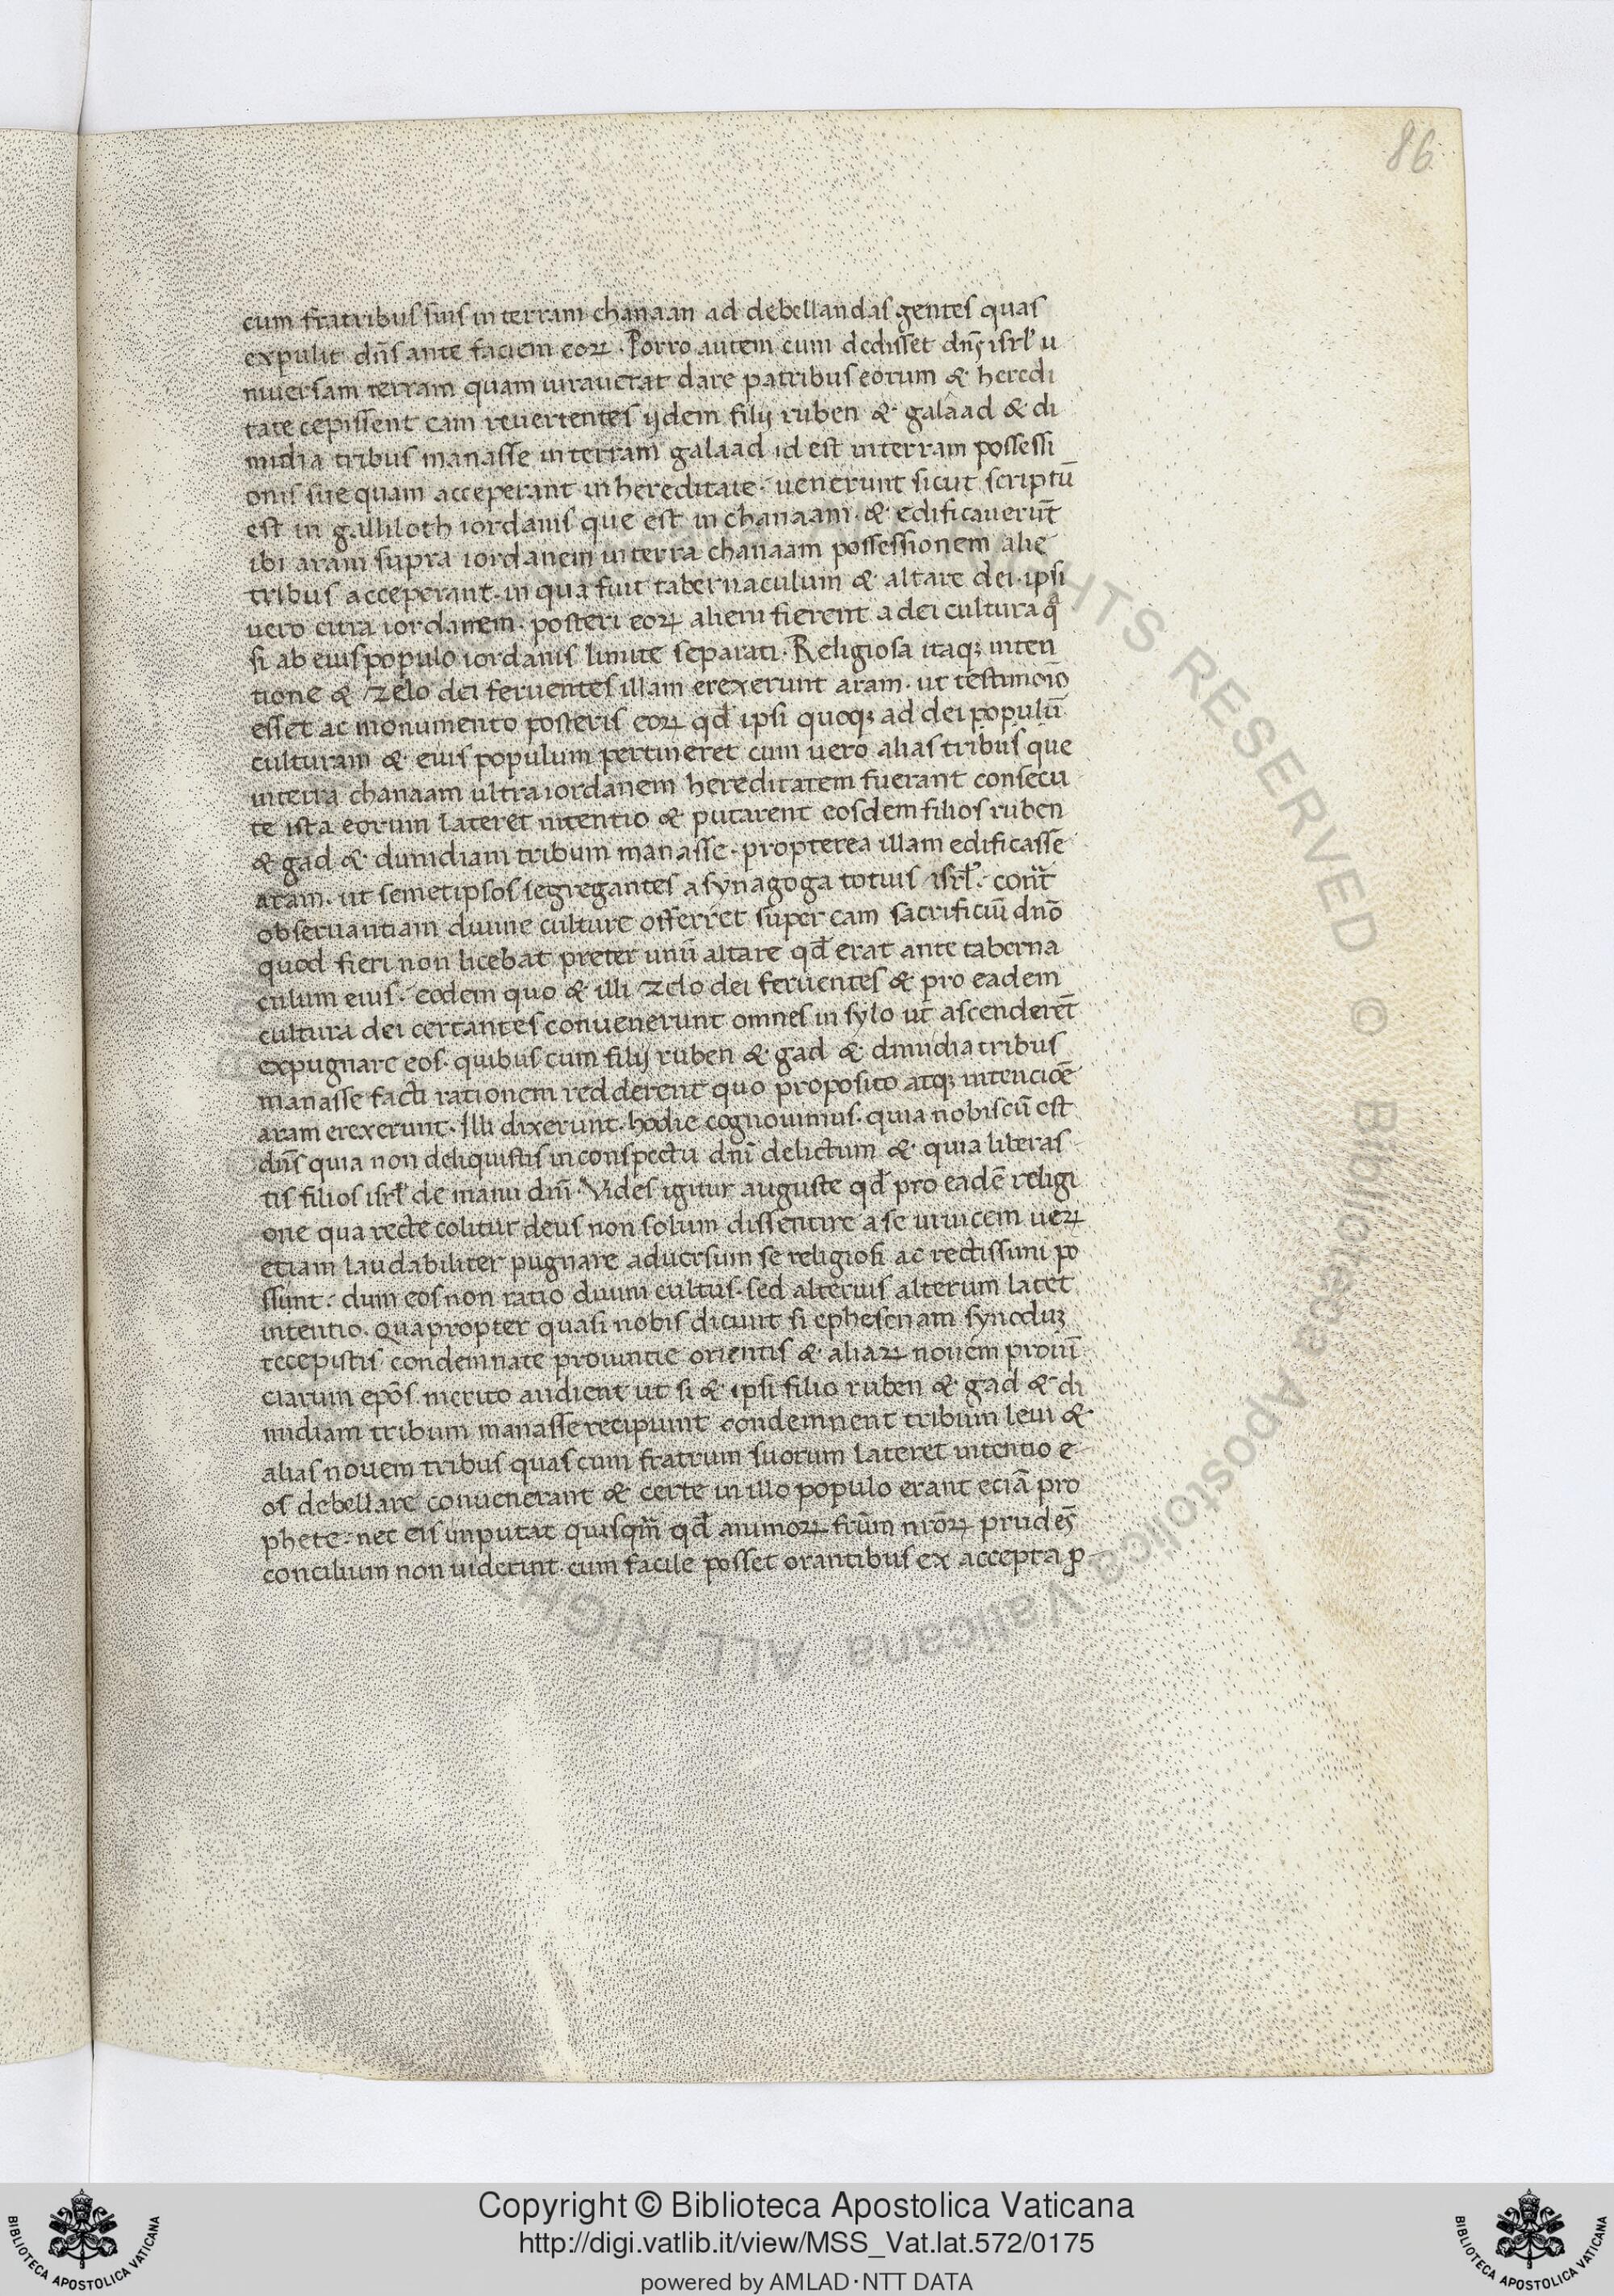 86
cum fratribus suis in terram chanaan ad debellandas gentes quas
expulit dn̄s ante faciem eoꝝ. Porro autem cum dedisset dn̄s isrł u
niuersam terram quam iurauerat dare patribus eorum & heredi
tate cepissent eam reuertentes ijdem filij ruben & galaad & di
midia tribus manasse in terram galaad id est in terram possessi
onis sue quam acceperant in hereditate. uenerunt sicut scriptū
est in galliloth iordanis que est in chanaam. & edificauerūt
ibi aram supra iordanem in terra chanaam possessionem alie
tribus acceperant. in qua fuit tabernaculum & altare dei. ipsi
uero citra iordanem. posteri eoꝝ alieni fierent a dei cultura qͣ
si ab eius populo iordanis limite separati. Religiosa itaqꝫ inten
tione & zelo dei feruentes illam erexerunt aram. ut testimōio
esset ac monumento posteris eoꝝ qđ ipsi quoqꝫ ad dei populū
culturam & eius populum pertineret cum uero alias tribus que
in terra chanaam ultra iordanem hereditatem fuerant consecu
te ista eorum lateret intentio & putarent eosdem filios ruben
& gad & dimidiam tribum manasse. propterea illam edificasse
aram. ut semetipsos segregantes a synagoga totius isrł. cont̄
obseruantiam diuine culture offerret super eam sacrificiū dn̄o
quod fieri non licebat preter unū altare qđ erat ante taberna
culum eius. eodem quo & illi zelo dei feruentes & pro eadem
cultura dei certantes conuenerunt omnes in sylo ut ascenderēt
expugnare eos. quibus cum filij ruben & gad & dimidia tribus
manasse facti rationem redderent quo proposito atqꝫ intenciōe
aram erexerunt. Illi dixerunt. hodie cognouimus. quia nobiscū est
dn̄s quia non deliquistis in conspectu dn̄i delictum & quia liberas
tis filios isrł de manu dn̄i. Vides igitur auguste qđ pro eadē religi
one qua recte colitur deus non solum dissentire a se inuicem ueꝝ
etiam laudabiliter pugnare aduersum se religiosi ac rectissimi po
ssunt. dum eos non ratio diuini cultus. sed alterius alterum latet
intentio. Quapropter quasi nobis dicunt si ephesenam synoduꝫ
recepistis condemnate prouintie orientis & aliaꝝ nouem prouī
ciarum ep̄os. merito audient ut si & ipsi filio ruben & gad & di
midiam tribum manasse recipiunt condemnent tribum leui &
alias nouem tribus quas cum fratrum suorum lateret intentio e
os debellare conuenerant & certe in illo populo erant eciā pro
phete. nec eis imputat quisqm̄ qđ animoꝝ frūm nr̄oꝝ prudēs
concilium non uiderint. cum facile posset orantibus ex accepta ꝑ
Copyright © Biblioteca Apostolica Vaticana
http://digi.vatlib.it/view/MSS_Vat.lat.572/0175
powered by AMLAD·NTT DATA